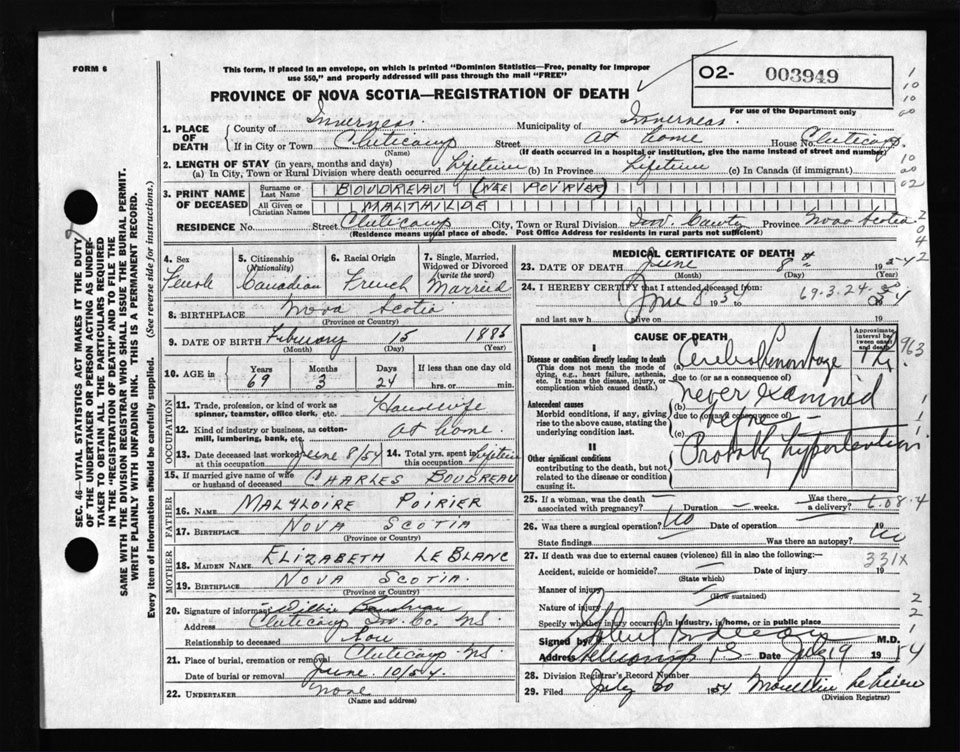 FORM 6
This form, if placed in an envelope, on which is printed "Dominion Statistics—Free, penalty for improper
use $50," and properly addressed will pass through the mail "FREE"
PROVINCE OF NOVA SCOTIA—REGISTRATION OF DEATH
O2- 003949
For use of the Department only
1. PLACE OF DEATH
County of Inverness Municipality of Inverness
If in City or Town Cheticamp Street At home House No. Cheticamp
(Name) (If death occurred in a hospital or institution, give the name instead of street and number)
2. LENGTH OF STAY (in years, months and days)
(a) In City, Town or Rural Division where death occurred Lifetime (b) In Province Lifetime (c) In Canada (if immigrant)
3. PRINT NAME OF DECEASED
Surname or Last Name BOUDREAU (NEE POIRIER)
All Given or Christian Names MALTHILDE
RESIDENCE No. Street Cheticamp City, Town or Rural Division Inv. County Province Nova Scotia
(Residence means usual place of abode. Post Office Address for residents in rural parts not sufficient)
4. Sex Female
5. Citizenship (Nationality) Canadian
6. Racial Origin French
7. Single, Married, Widowed or Divorced (write the word) Married
8. BIRTHPLACE Nova Scotia
(Province or Country)
9. DATE OF BIRTH February 15 1885
(Month) (Day) (Year)
10. AGE in Years 69 Months 3 Days 24 If less than one day old hrs. or min.
OCCUPATION
11. Trade, profession, or kind of work as spinner, teamster, office clerk, etc. Housewife
12. Kind of industry or business, as cotten-mill, lumbering, bank, etc. At home.
13. Date deceased last worked at this occupation June 8/54 14. Total yrs. spent in this occupation Lifetime
15. If married give name of wife or husband of deceased CHARLES BOUDREAU
FATHER
16. NAME MALYLOIRE POIRIER
17. BIRTHPLACE NOVA SCOTIA
(Province or Country)
MOTHER
18. MAIDEN NAME ELIZABETH LEBLANC
19. BIRTHPLACE NOVA SCOTIA.
(Province or Country)
20. Signature of informant Boudreau
Address Cheticamp Inv. Co. N.S.
Relationship to deceased Son
21. Place of burial, cremation or removal Cheticamp N.S.
Date of burial or removal June 10/54.
22. UNDERTAKER None
(Name and address)
MEDICAL CERTIFICATE OF DEATH
23. DATE OF DEATH June 8th 19
(Month) (Day) (Year)
24. I HEREBY CERTIFY that I attended deceased from June 8 1954 69.3.24
and last saw h alive on 19
CAUSE OF DEATH
Approximate interval between onset and death
I
Disease or condition directly leading to death
(This does not mean the mode of dying, e.g., heart failure, asthenia, etc. It means the disease, injury, or complication which caused death.)
(a) Cerebral Hemorrhage
due to (or as a consequence of)
Antecedent causes
Morbid conditions, if any, giving rise to the above cause, stating the underlying condition last.
(b) never examined
due to (or as a consequence of)
(c)
II
Other significant conditions
contributing to the death, but not related to the disease or condition causing it.
Probably hypertension
25. If a woman, was the death associated with pregnancy? Duration weeks. Was there a delivery? 608.4
26. Was there a surgical operation? No Date of operation 19
State findings Was there an autopsy? No
27. If death was due to external causes (violence) fill in also the following:—
331X
Accident, suicide or homicide? Date of injury 19
(State which)
Manner of injury
(How sustained)
Nature of injury
Specify whether injury occurred in industry, in home, or in public place
Signed by M.D.
Address Date July 9 1954
28. Division Registrar's Record Number
29. Filed July 20 1954
(Division Registrar)
SEC. 46—VITAL STATISTICS ACT MAKES IT THE DUTY
OF THE UNDERTAKER OR PERSON ACTING AS UNDER-
TAKER TO OBTAIN ALL THE PARTICULARS REQUIRED
IN THE "REGISTRATION OF DEATH" AND TO FILE THE
SAME WITH THE DIVISION REGISTRAR WHO SHALL ISSUE THE BURIAL PERMIT.
WRITE PLAINLY WITH UNFADING INK. THIS IS A PERMANENT RECORD.
Every item of information should be carefully supplied. (See reverse side for instructions.)